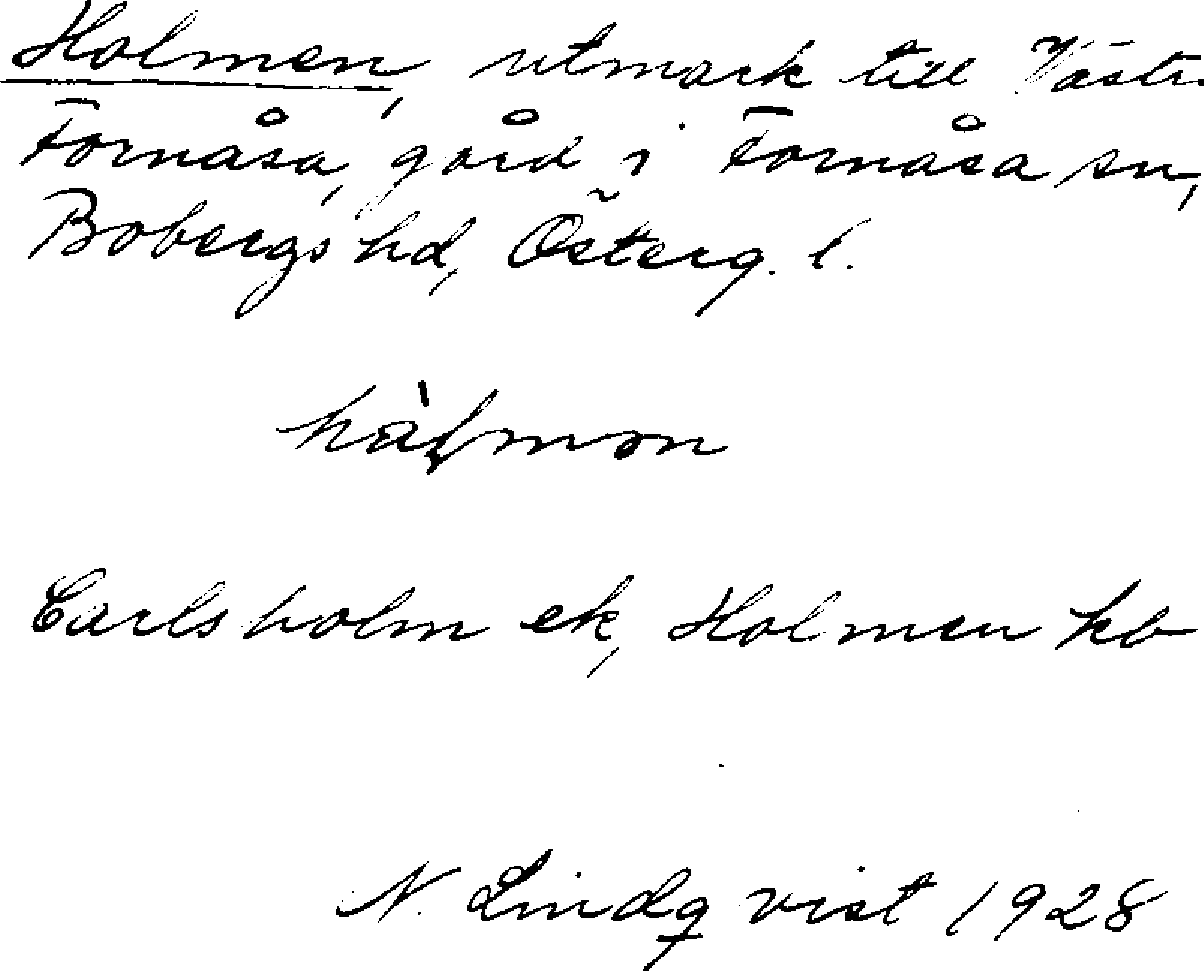 Holmen, utmark till Västr
Fornåsa, gård i Fornåsa sn,
Bobergs hd, Österg. l.
Carlsholm ek, Holmen kb
N. Lindqvist 1928